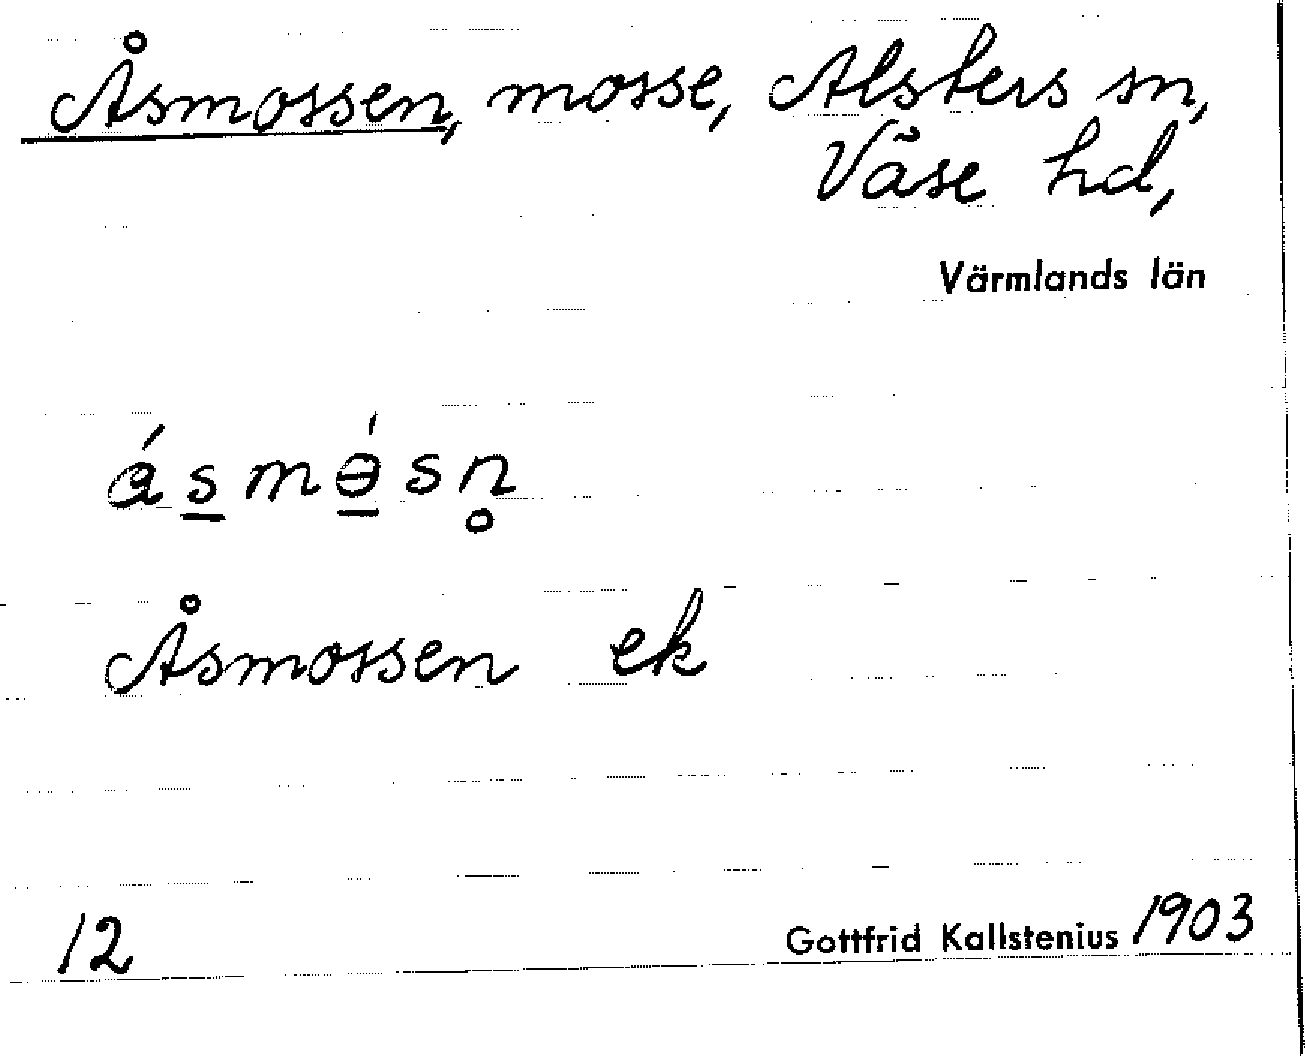 Åsmossen, mosse, Alsters sn,
Väse hd,
Värmlands län
ás̲mɵ̲́sn̥
Åsmossen ek
12
Gottfrid Kallstenius 1903